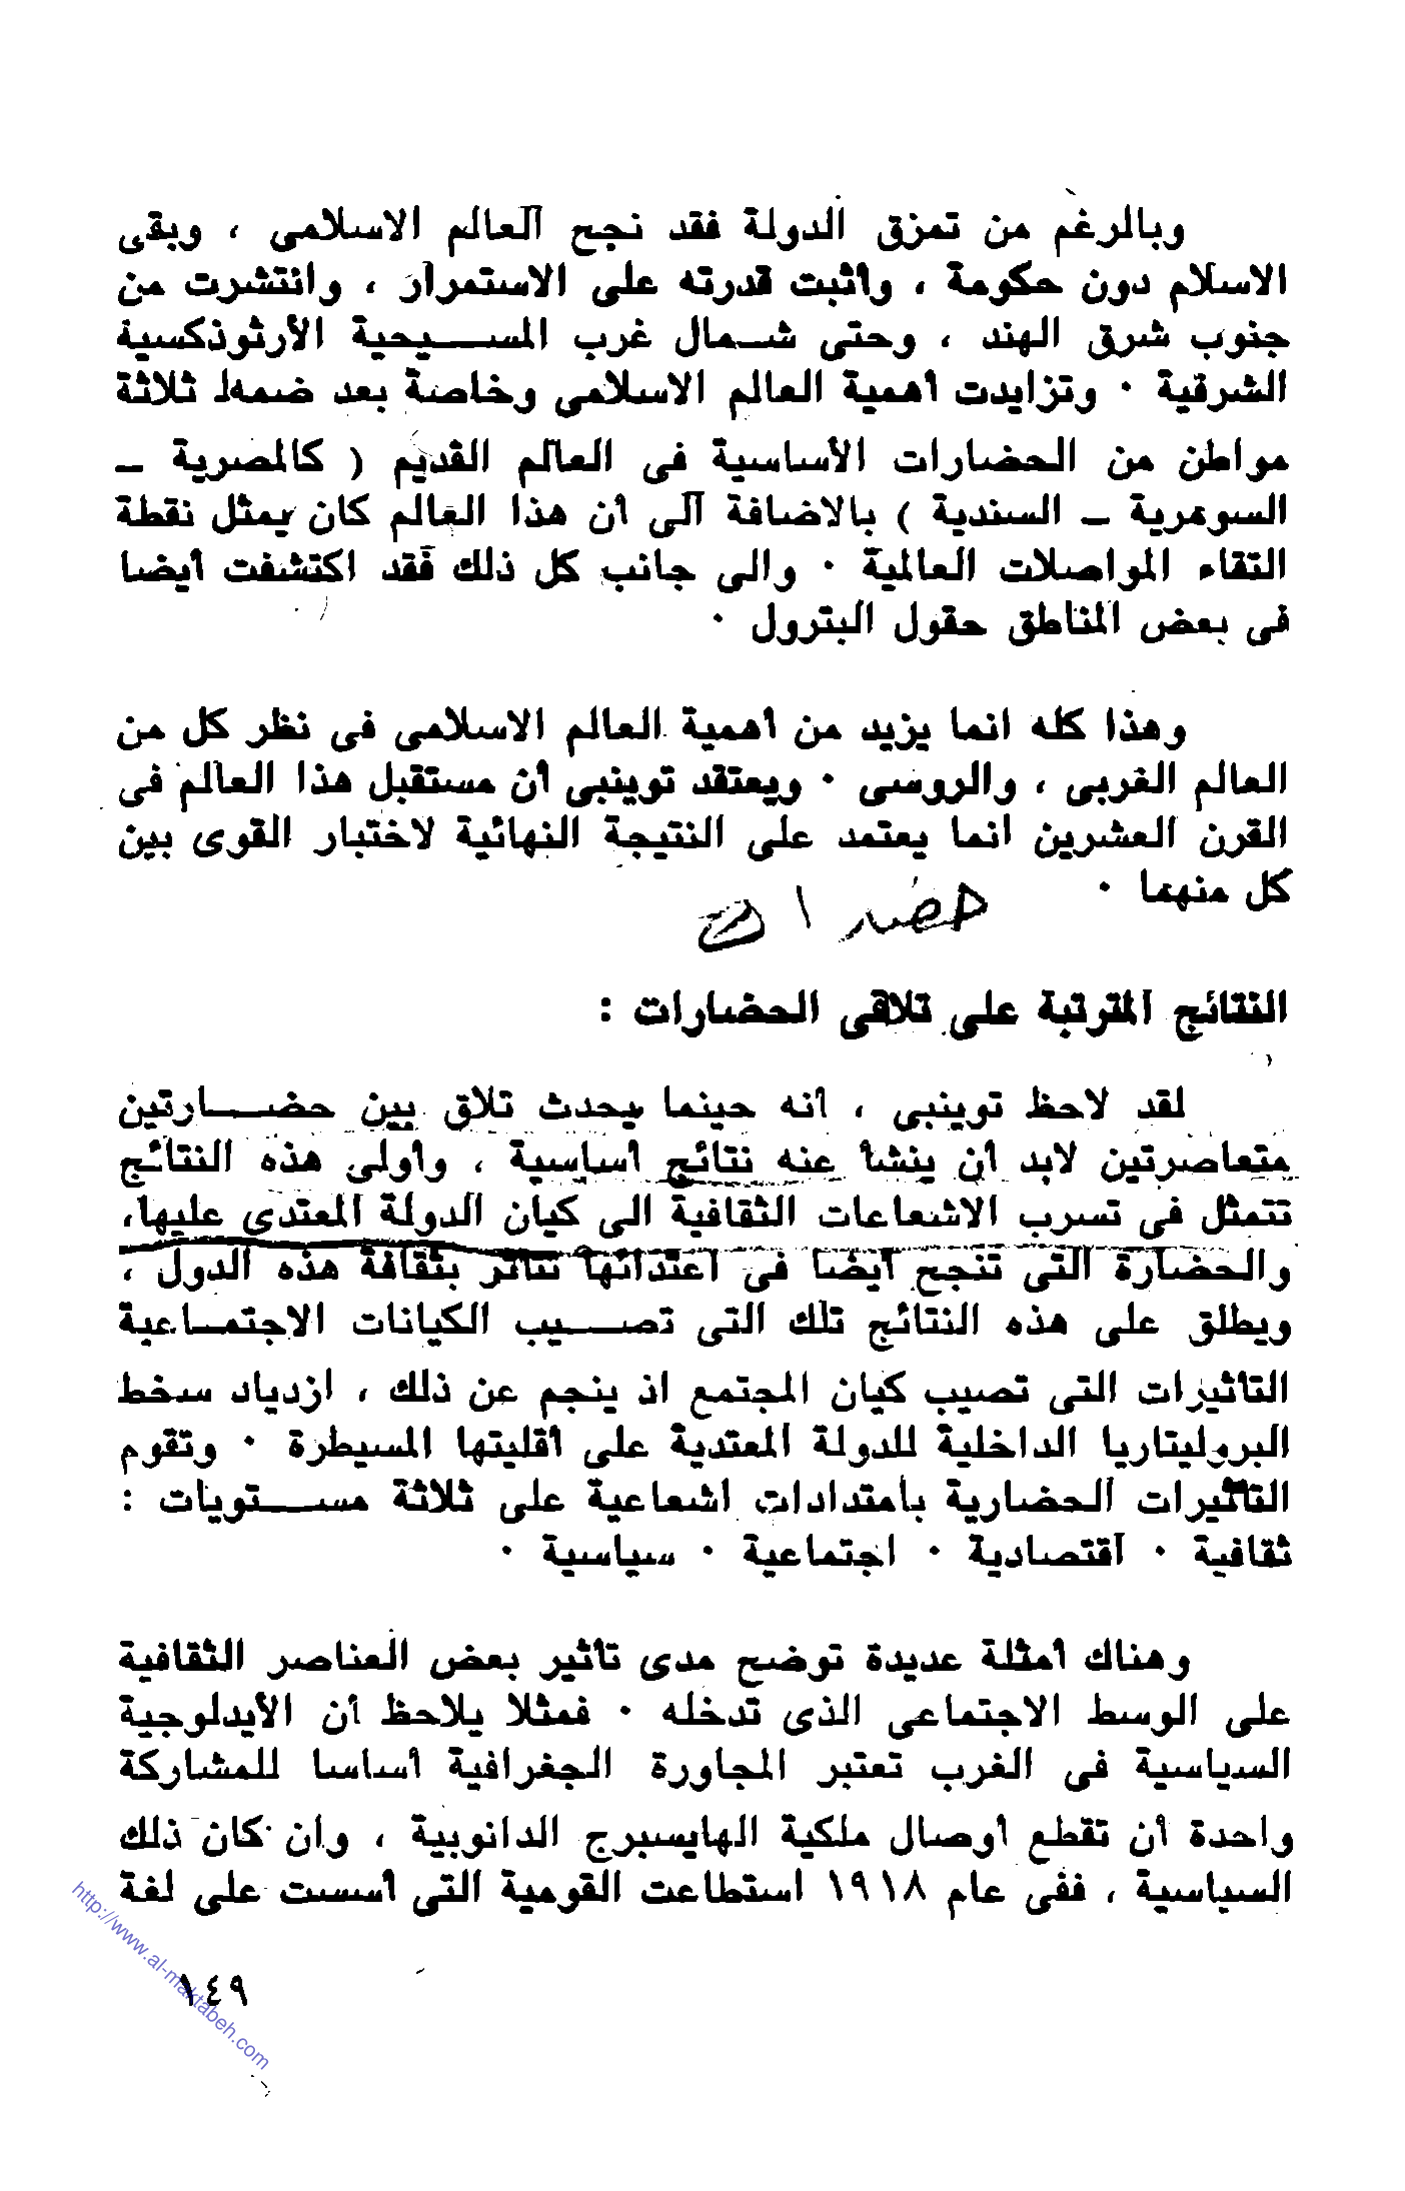 وبالرغم من تمزق الدولة فقد نجح العالم الاسلامى ، وبقى
الاسلام دون حكومة ، وأثبت قدرته على الاستمرار ، وانتشرت من
جنوب شرق الهند ، وحتى شـمال غرب المسـيحية الأرثوذكسية
الشرقية ٠ وتزايدت أهمية العالم الاسلامى وخاصة بعد ضمه ثلاثة
مواطن من الحضارات الأساسية فى العالم القديم ( كالمصرية ـ
السومرية ـ السندية ) بالاضافة الى أن هذا العالم كان يمثل نقطة
التقاء المواصلات العالمية ٠ والى جانب كل ذلك فقد اكتشفت أيضا
فى بعض المناطق حقول البترول ٠
وهذا كله انما يزيد من أهمية العالم الاسلامى فى نظر كل من
العالم الغربى ، والروسى ٠ ويعتقد توينبى أن مستقبل هذا العالم فى
القرن العشرين انما يعتمد على النتيجة النهائية لاختبار القوى بين
كل منهما ٠
النتائج المترتبة على تلاقى الحضارات :
لقد لاحظ توينبى ، أنه حينما يحدث تلاق بين حضـارتين
متعاصرتين لابد أن ينشأ عنه نتائج أساسية ، وأولى هذه النتائج
تتمثل فى تسرب الاشعاعات الثقافية الى كيان الدولة المعتدى عليها،
والحضارة التى تنجح أيضا فى اعتدائها تتأثر بثقافة هذه الدول ،
ويطلق على هذه النتائج تلك التى تصـيب الكيانات الاجتمـاعية
التأثيرات التى تصيب كيان المجتمع اذ ينجم عن ذلك ، ازدياد سخط
البروليتاريا الداخلية للدولة المعتدية على أقليتها المسيطرة ٠ وتقوم
التأثيرات الحضارية بامتدادات اشعاعية على ثلاثة مسـتويات :
ثقافية ٠ اقتصادية ٠ اجتماعية ٠ سياسية ٠
وهناك أمثلة عديدة توضح مدى تأثير بعض العناصر الثقافية
على الوسط الاجتماعى الذى تدخله ٠ فمثلا يلاحظ أن الأيدلوجية
السياسية فى الغرب تعتبر المجاورة الجغرافية أساسا للمشاركة
واحدة أن تقطع أوصال ملكية الهايسبرج الدانوبية ، وان كان ذلك
السياسية ، ففى عام ١٩١٨ استطاعت القومية التى أسست على لغة
١٤٩
http://www.al-maktabeh.com